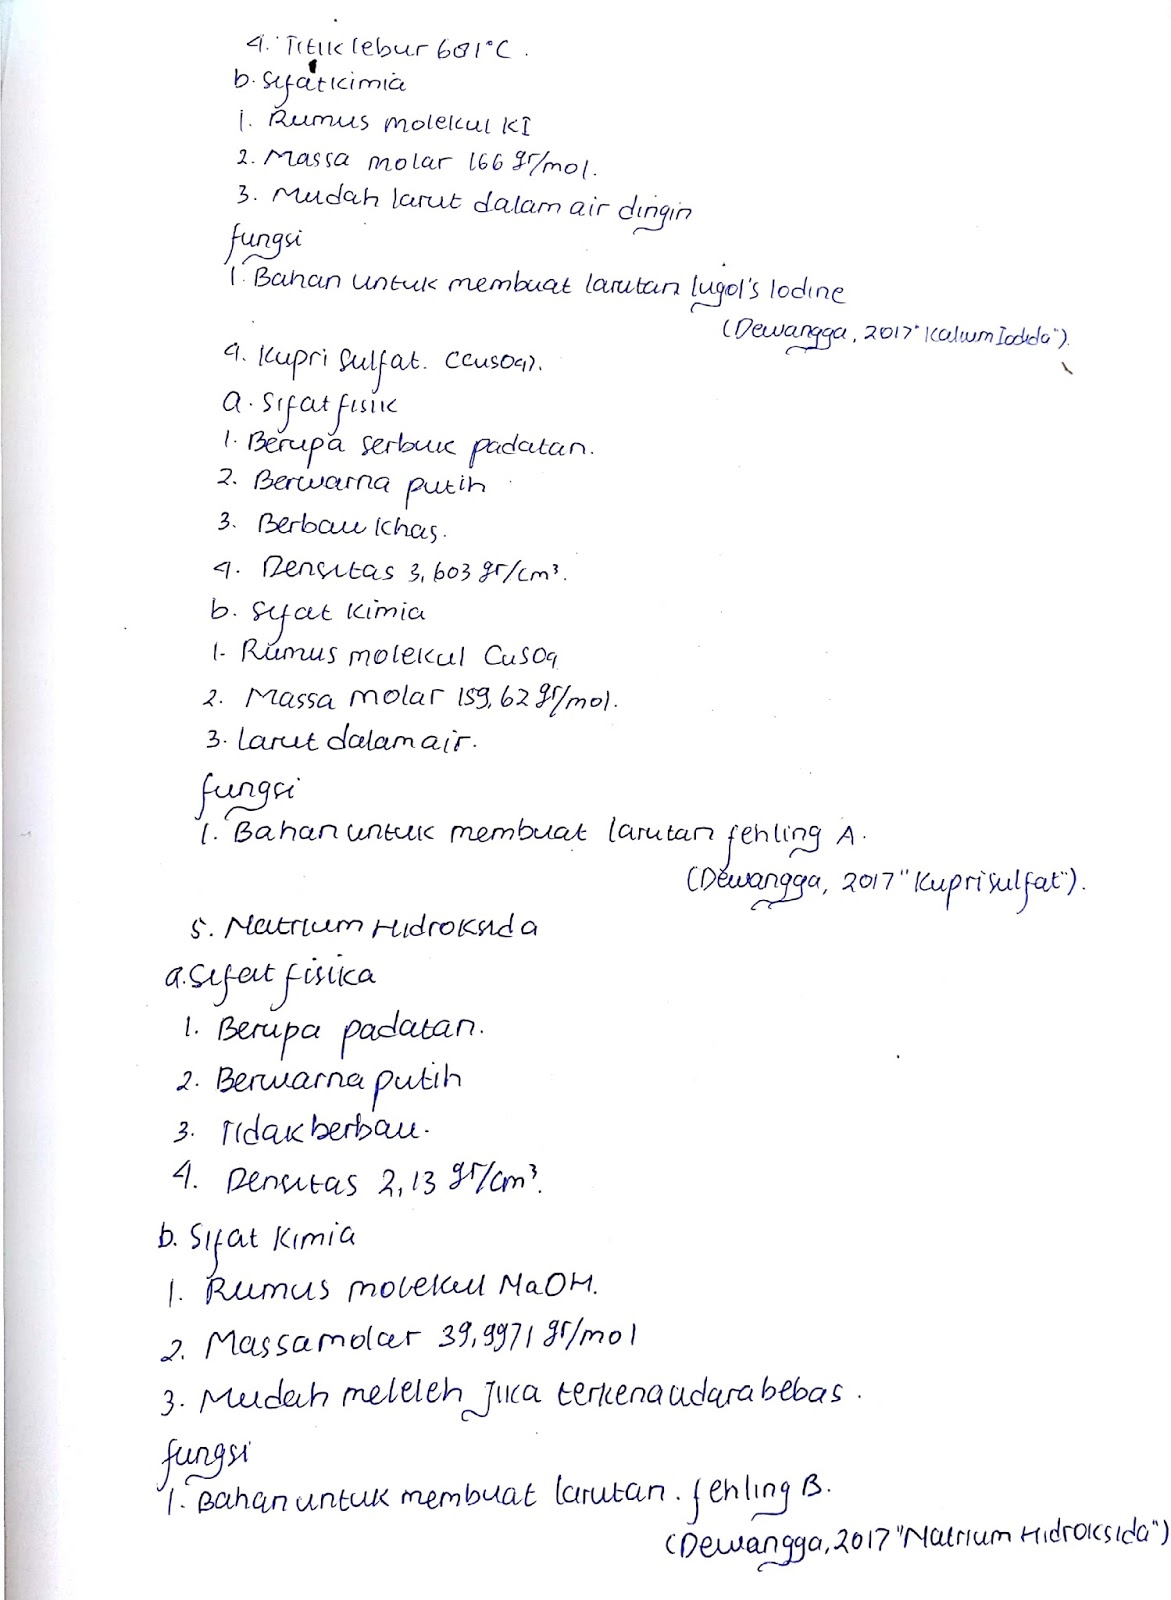 4. Titik lebur 681°C.
b. Sifat kimia
1. Rumus molekul KI
2. Massa molar 166 gr/mol.
3. Mudah larut dalam air dingin
fungsi
1. Bahan untuk membuat larutan lugol's Iodine
(Dewangga, 2017 "Kalium Iodida").
4. Kupri Sulfat. (CuSO4).
a. Sifat fisik
1. Berupa serbuk padatan.
2. Berwarna putih
3. Berbau khas.
4. Densitas 3,603 gr/cm³.
b. Sifat kimia
1. Rumus molekul CuSO4
2. Massa molar 159,62 gr/mol.
3. Larut dalam air.
fungsi
1. Bahan untuk membuat larutan fehling A.
(Dewangga, 2017 "Kupri sulfat").
5. Natrium Hidroksida
a. Sifat fisika
1. Berupa padatan.
2. Berwarna putih
3. Tidak berbau.
4. Densitas 2,13 gr/cm³.
b. Sifat Kimia
1. Rumus molekul NaOH.
2. Massa molar 39,9971 gr/mol
3. Mudah meleleh jika terkena udara bebas.
fungsi
1. Bahan untuk membuat larutan. fehling B.
(Dewangga, 2017 "Natrium Hidroksida")